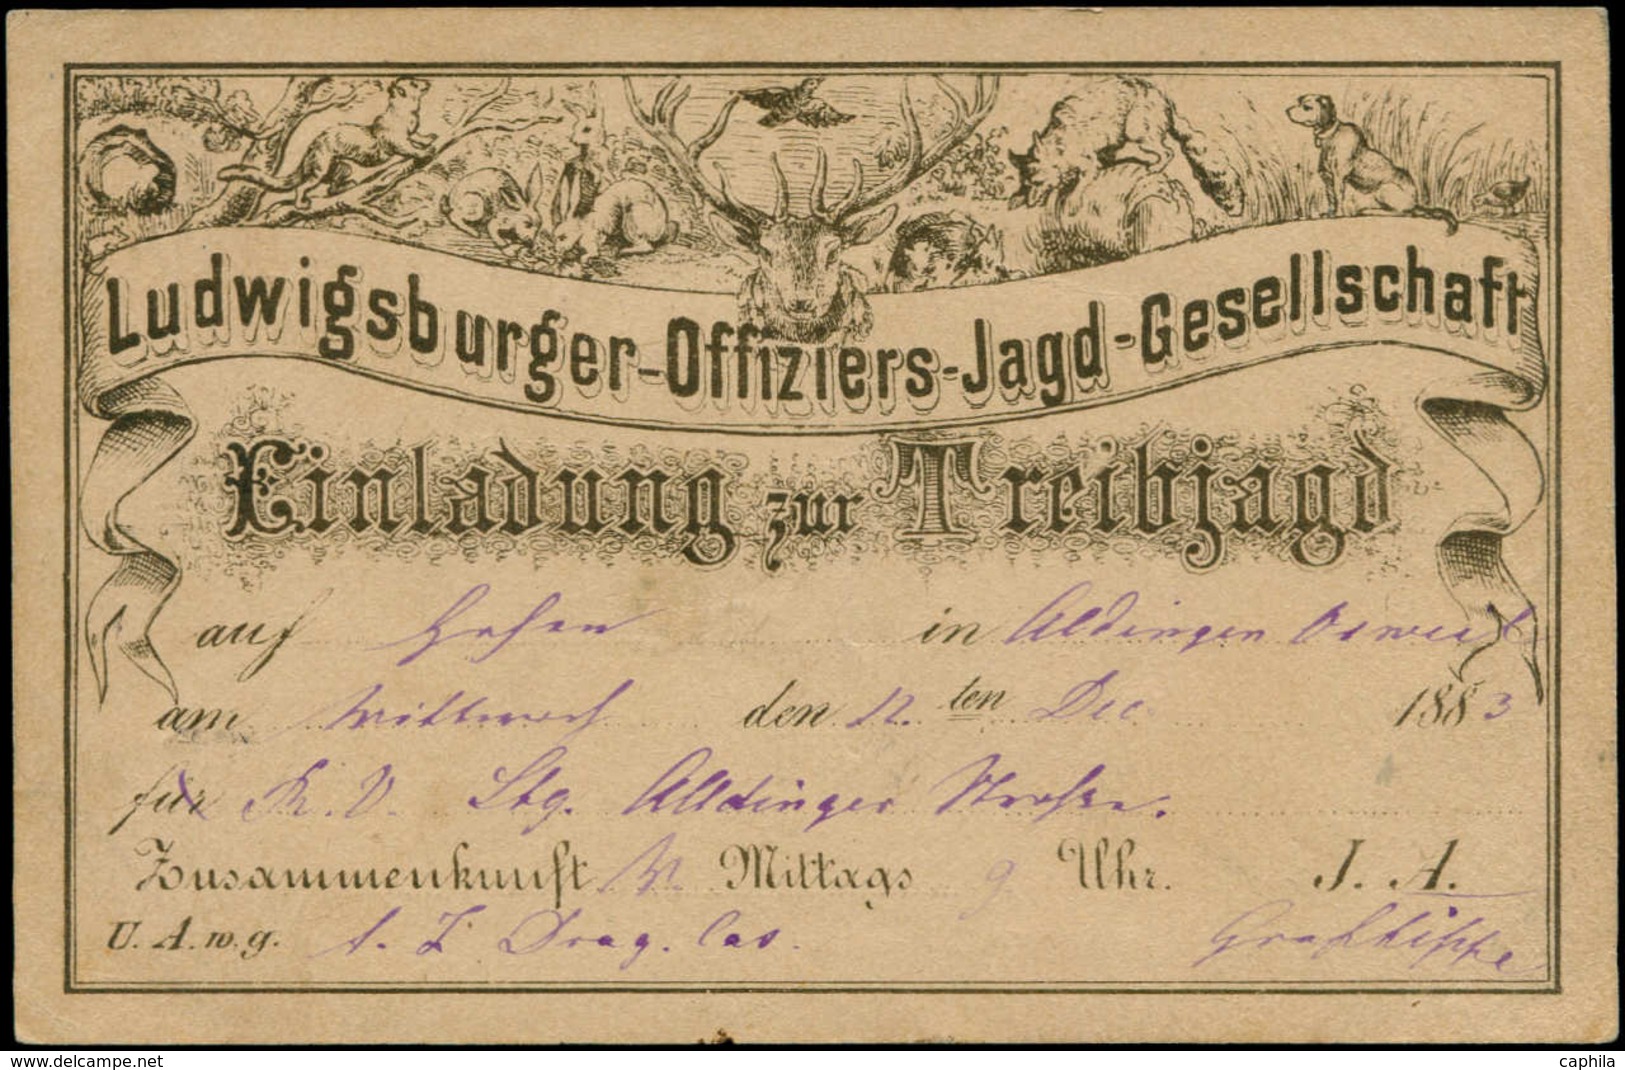 Ludwigsburger-Offiziers-Jagd-Gesellschaft
Einladung zur Treibjagd
auf Hasen in Aldingen
am Mittwoch den 12. ten Dec 1883
für Aldinger Strasse.
Zusammenkunft V. Mittags 9 Uhr. J. A.
U. A. w. g. Drag. Cas.
www.delcampe.net
caphila